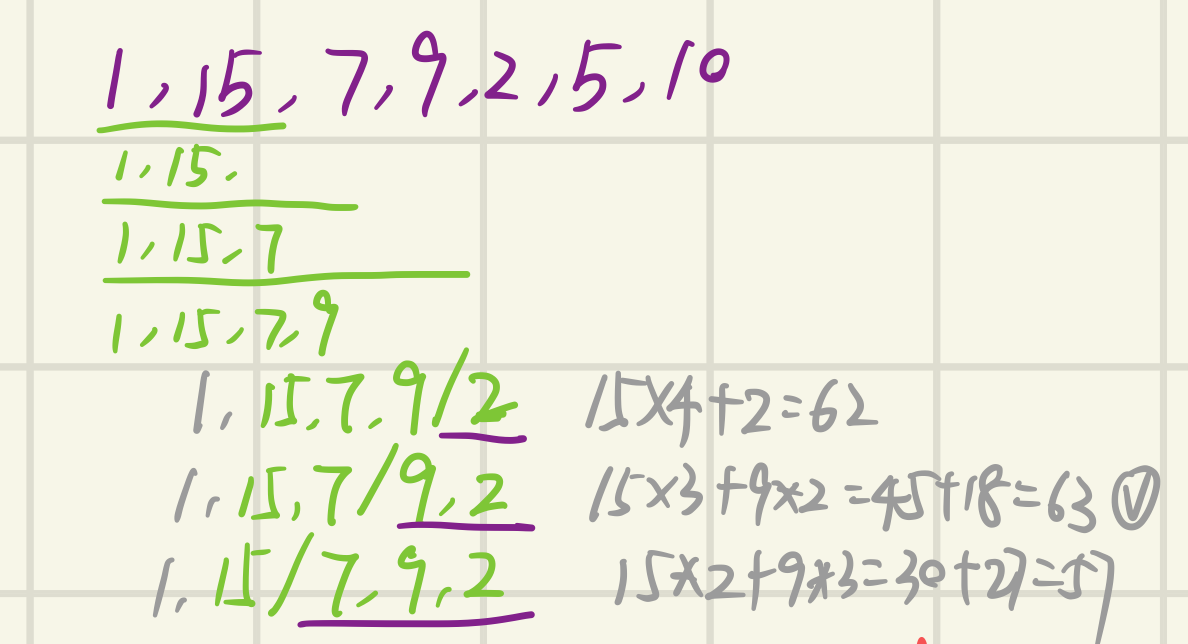 1,15,7,9,2,5,10
1,15,
1,15,7
1,15,7,9
1,15,7,9/2 15×4+2=62
1,15,7/9,2 15×3+9×2=45+18=63 ✓
1,15/7,9,2 15×2+9×3=30+27=57